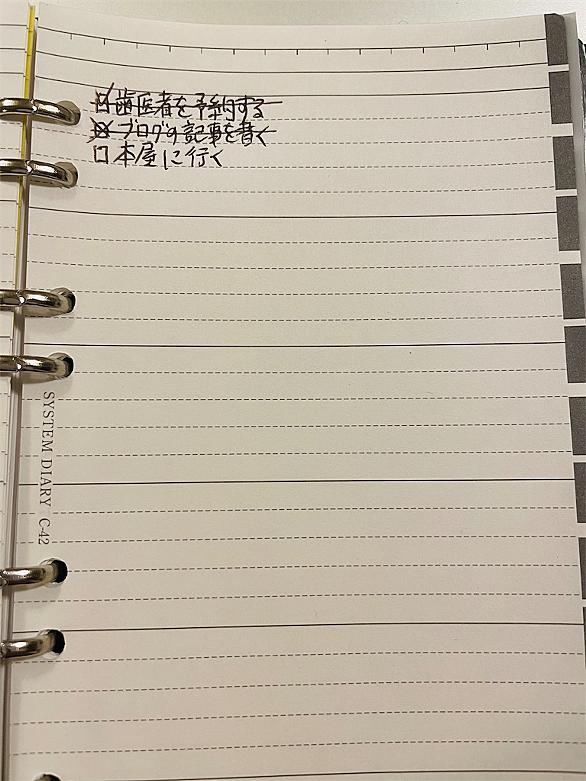 ☑歯医者を予約する
☒ブログの記事を書く
□本屋に行く
SYSTEM DIARY C-42